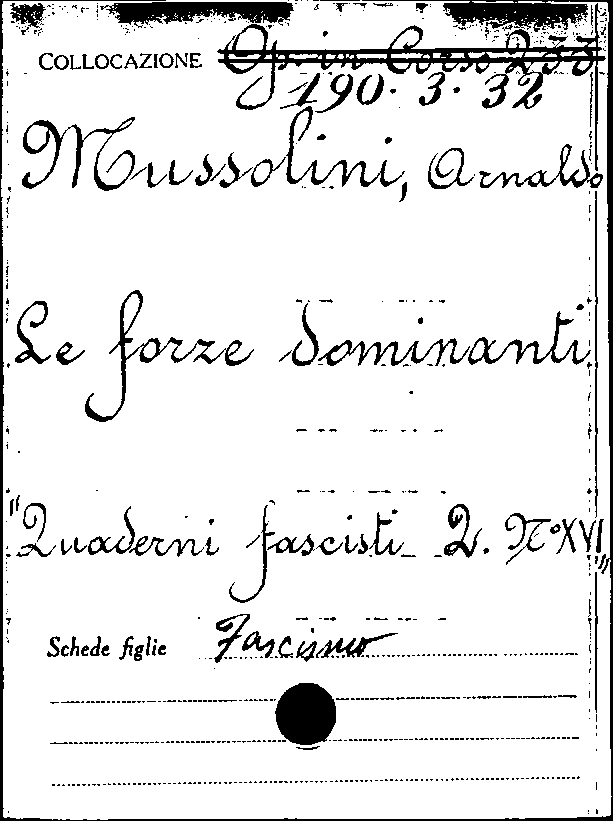 COLLOCAZIONE Op. in Corso 233
190. 3. 32
Mussolini, Arnaldo
Le forze dominanti
"Quaderni fascisti 2. N° XVI"
Schede figlie Fascismo